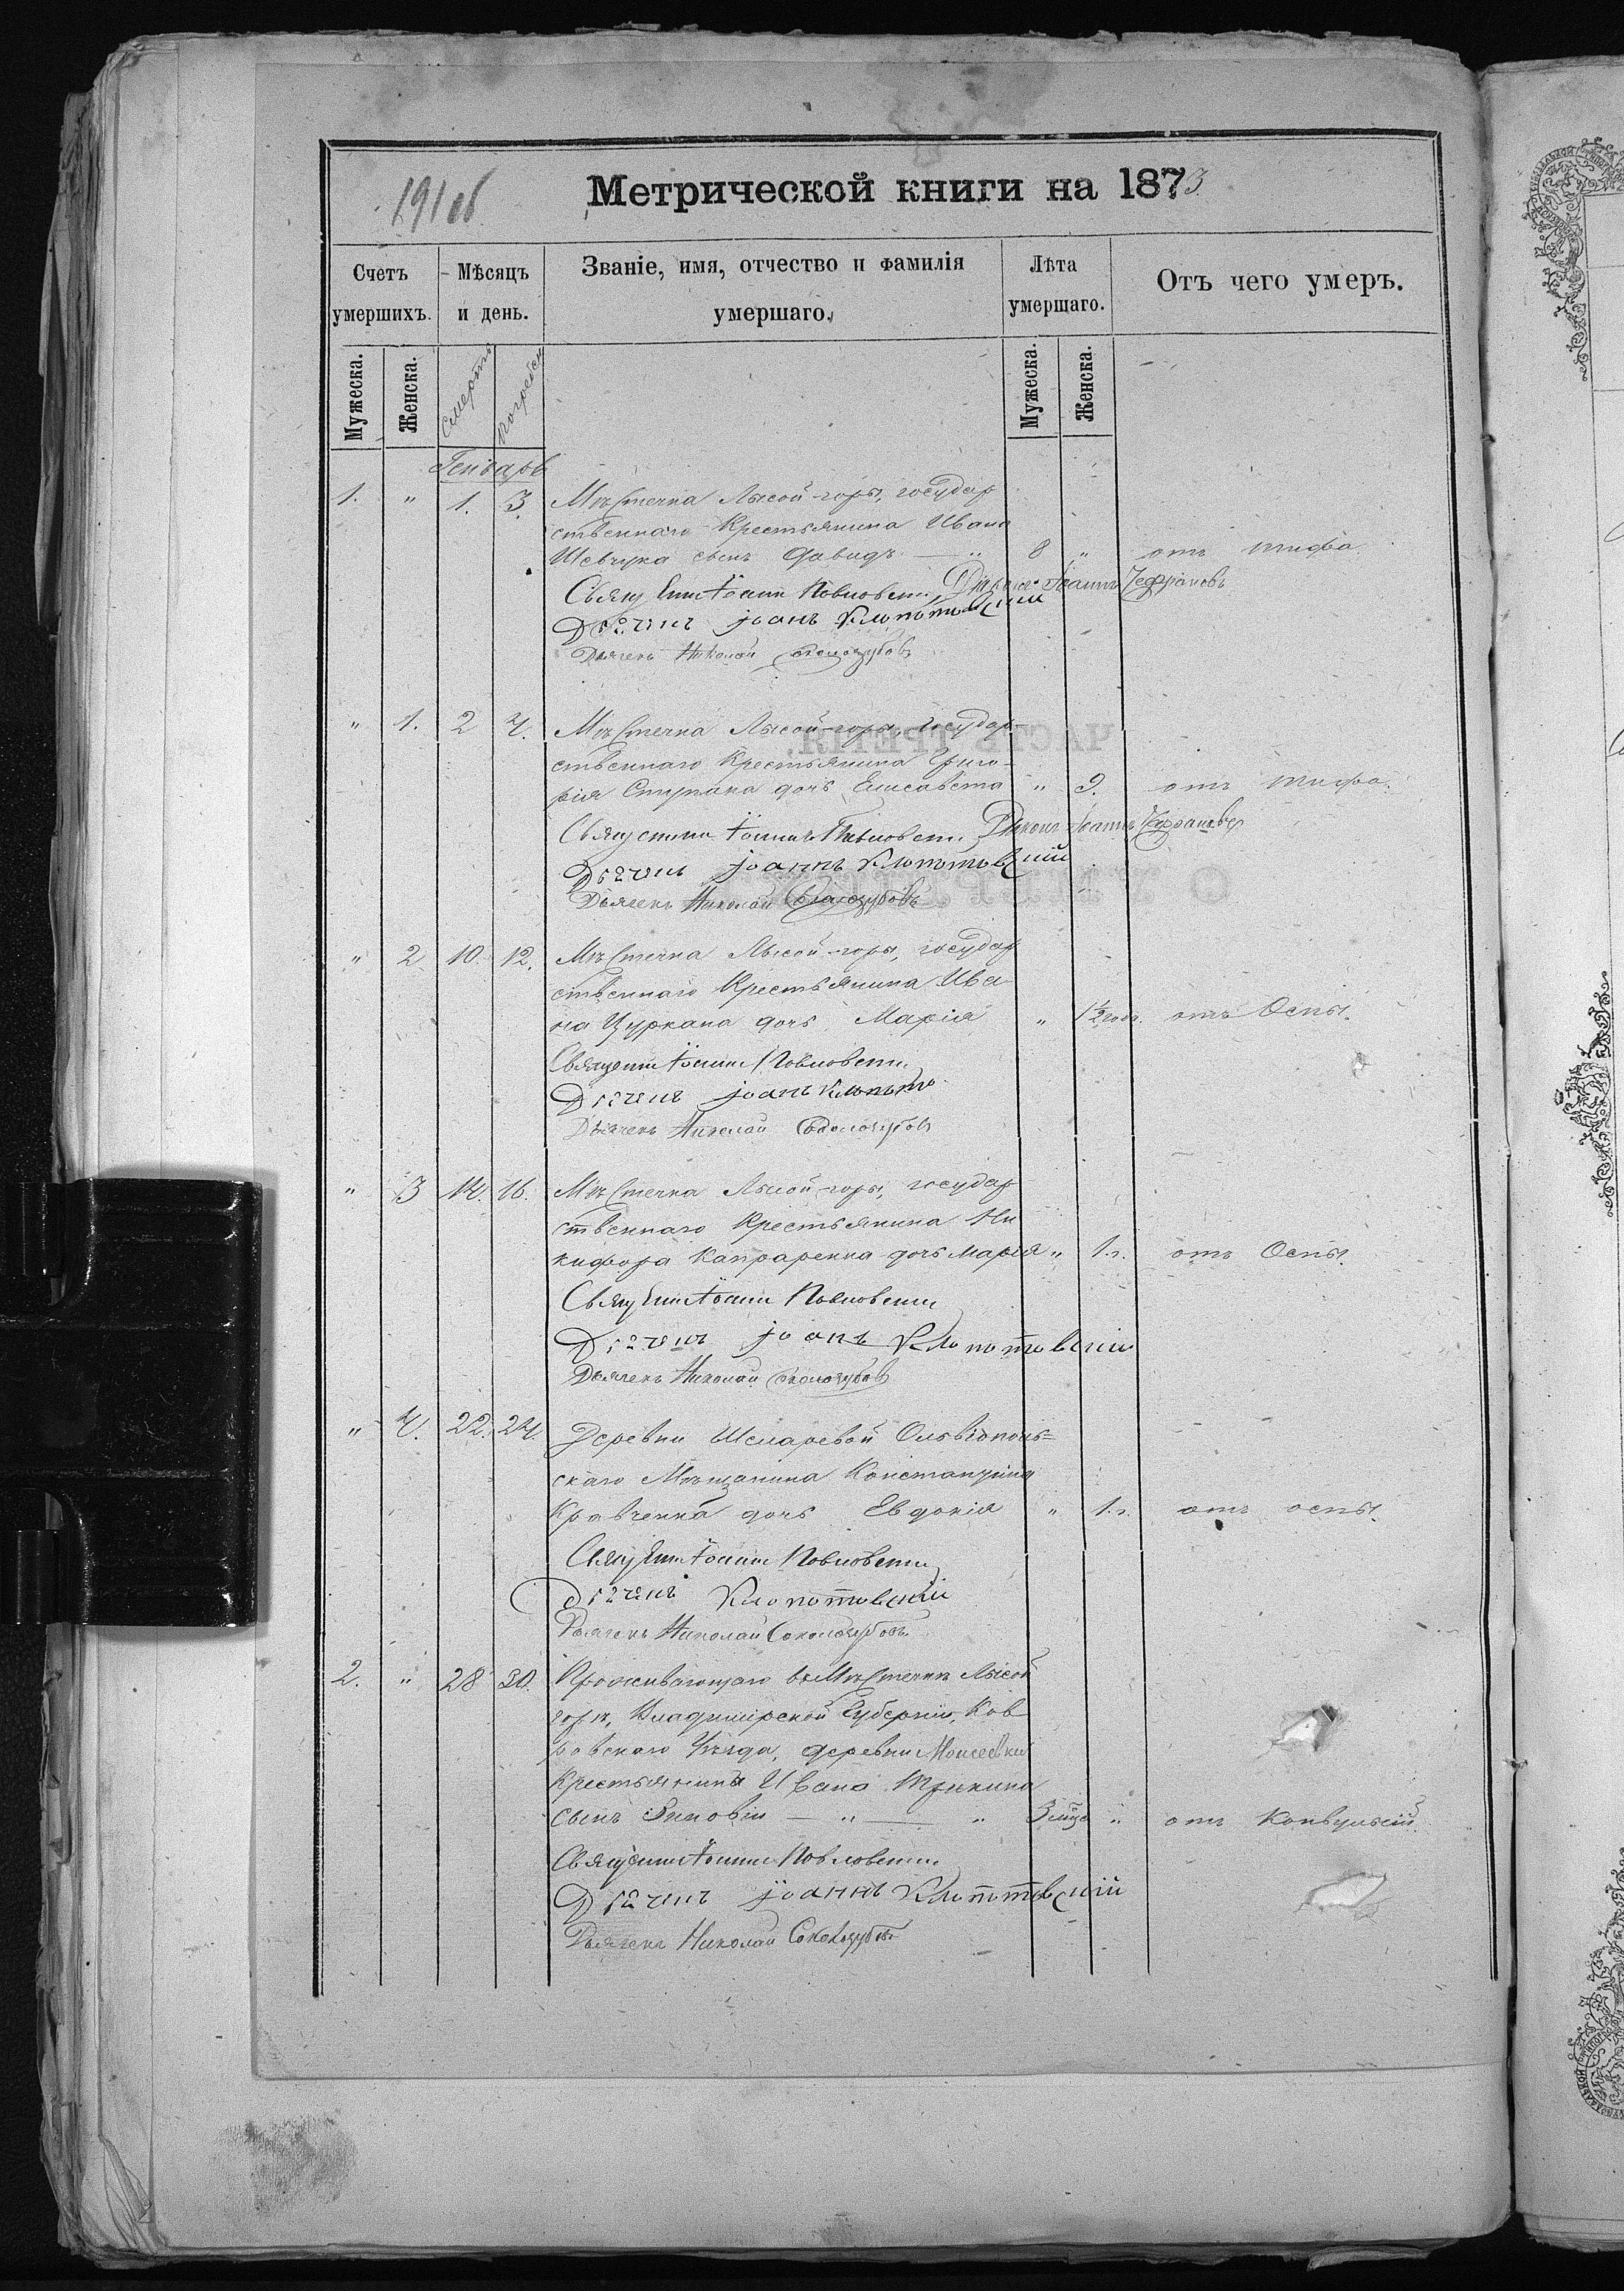 191 об
Метрической книги на 1873
Счетъ умершихъ.
Мѣсяцъ и день.
Званіе, имя, отчество и фамилія умершаго.
Лѣта умершаго.
Отъ чего умеръ.
Мужеска. Женска. Смерть Погребен Мужеска. Женска.
Генварь
1. " 1. 3. Мѣстечка Лысой-горы, государ
ственнаго Крестьянина Ивана
Шевчука сынъ Давидъ — " 8 " отъ тифа
Священ Іоанн Павловски Діаконъ Іоаннъ
Дьячекъ Іоанъ Клопотовскій
Дьячекъ Николай Соколозубовъ
" 1. 2 4. Мѣстечка Лысой-горы, государ-
ственнаго Крестьянина Григо-
рія Ступака дочь Елисавета " 9. отъ тифа.
Священник Іоаннъ Павловски Діаконъ Іоаннъ
Дьячекъ Іоаннъ Клопотовскій
Дьячекъ Николай Соколозубовъ
" 2 10. 12. Мѣстечка Лысой-горы, государ
ственнаго Крестьянина Ива
на Цуркана дочь Марія " 1½ года. отъ Оспы.
Священник Іоанн Павловски
Дьячекъ Іоанъ Клопото
Дьячекъ Николай Соколозубовъ
" 3 14. 16. Мѣстечка Лысой-горы, государ
ственнаго Крестьянина Ни
кифора Капраренка дочь Марія " 1.г. отъ Оспы.
Священ Іоанн Павловски
Дьячекъ Іоанъ Клопотовскій
Дьячекъ Николай Соколозубов
" 4. 22. 24. Деревни Шемаревой Ольвіополь=
скаго Мѣщанина Константина
Кравченка дочь Евдокія " 1.г. отъ оспы.
Священ Іоанн Павловски
Дьячекъ Клопотовскій
Дьячекъ Николай Соколозубовъ
2. " 28 30. Проживающаго въ Мѣстечкѣ Лысой
горѣ, Владимірской Губерніи, Ков
ровскаго Уѣзда, деревни Моисеевки
Крестьянина Ивана
сынъ Зиновій — " — " 3 мѣс " отъ Конвульсій.
Священник Іоанн Павловски
Дьячекъ Іоаннъ Клопотовскій
Дьячекъ Николай Соколозубов